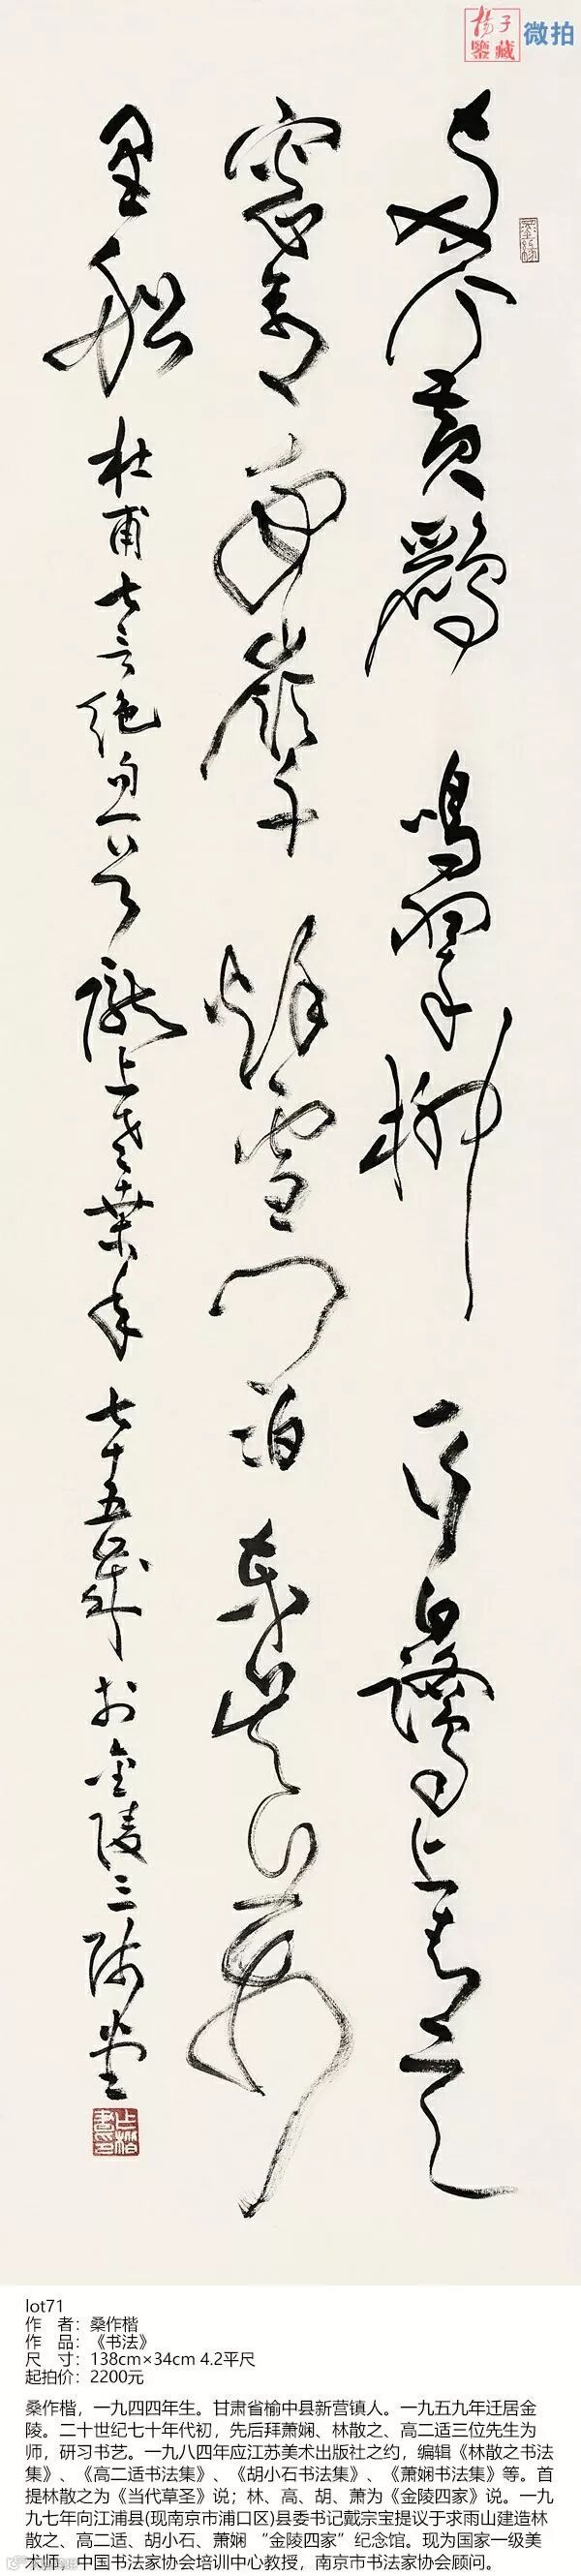 杨子
鉴藏
微拍
两个黄鹂鸣翠柳一行白鹭上青天
窗含西岭千秋雪门泊东吴万
里船 杜甫七言绝句 陇上老桑年七十五岁 于金陵三 堂
lot71
作 者：桑作楷
作 品：《书法》
尺 寸：138cm×34cm 4.2平尺
起拍价：2200元
桑作楷，一九四四年生。甘肃省榆中县新营镇人。一九五九年迁居金
陵。二十世纪七十年代初，先后拜萧娴、林散之、高二适三位先生为
师，研习书艺。一九八四年应江苏美术出版社之约，编辑《林散之书法
集》、《高二适书法集》、《胡小石书法集》、《萧娴书法集》等。首
提林散之为《当代草圣》说；林、高、胡、萧为《金陵四家》说。一九
九七年向江浦县(现南京市浦口区)县委书记戴宗宝提议于求雨山建造林
散之、高二适、胡小石、萧娴 “金陵四家”纪念馆。现为国家一级美
术师。中国书法家协会培训中心教授，南京市书法家协会顾问。